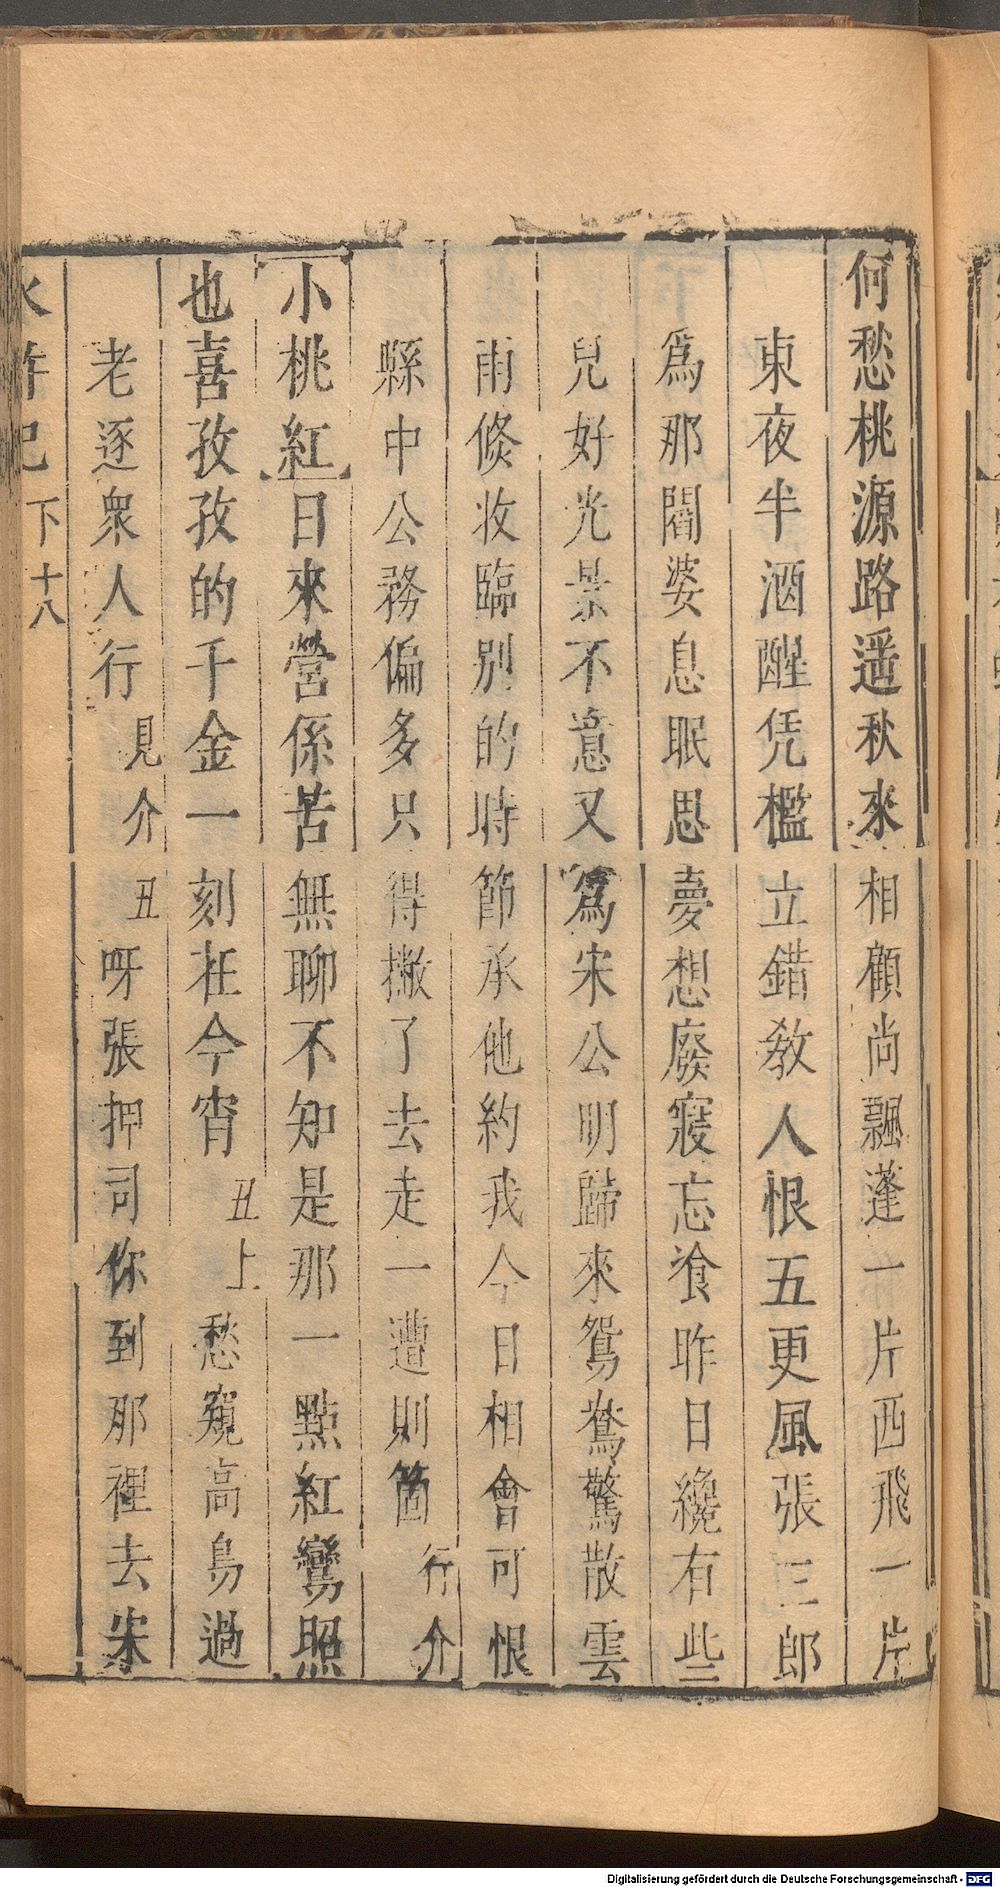 何愁桃源路遥秋來相顧尚飄蓬一片西飛一片
東夜半酒醒凭檻立錯教人恨五更風張三郎
爲那閻婆息眠思夢想廢寢忘飡昨日纔有些
兒好光景不意又爲宋公明歸來鴛鴦驚散雲
雨倐收臨别的時節承他約我今日相會可恨
縣中公務偏多只得撇了去走一遭則箇行介
小桃紅日來營係苦無聊不知是那一點紅鸞照
也喜孜孜的千金一刻在今宵丑上愁窺高鳥過
老逐衆人行見介丑呀張押司你到那裡去宋
水滸記 下 十八
Digitalisierung gefördert durch die Deutsche Forschungsgemeinschaft - DFG